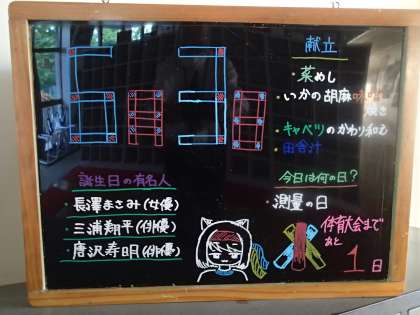 6月3日
献立
・菜めし
・いかの胡麻味噌
焼き
・キャベツのかわり和え
・田舎汁
誕生日の有名人
・長澤まさみ(女優)
・三浦翔平(俳優)
・唐沢寿明(俳優)
今日は何の日?
・測量の日
体育大会まで
あと
1日